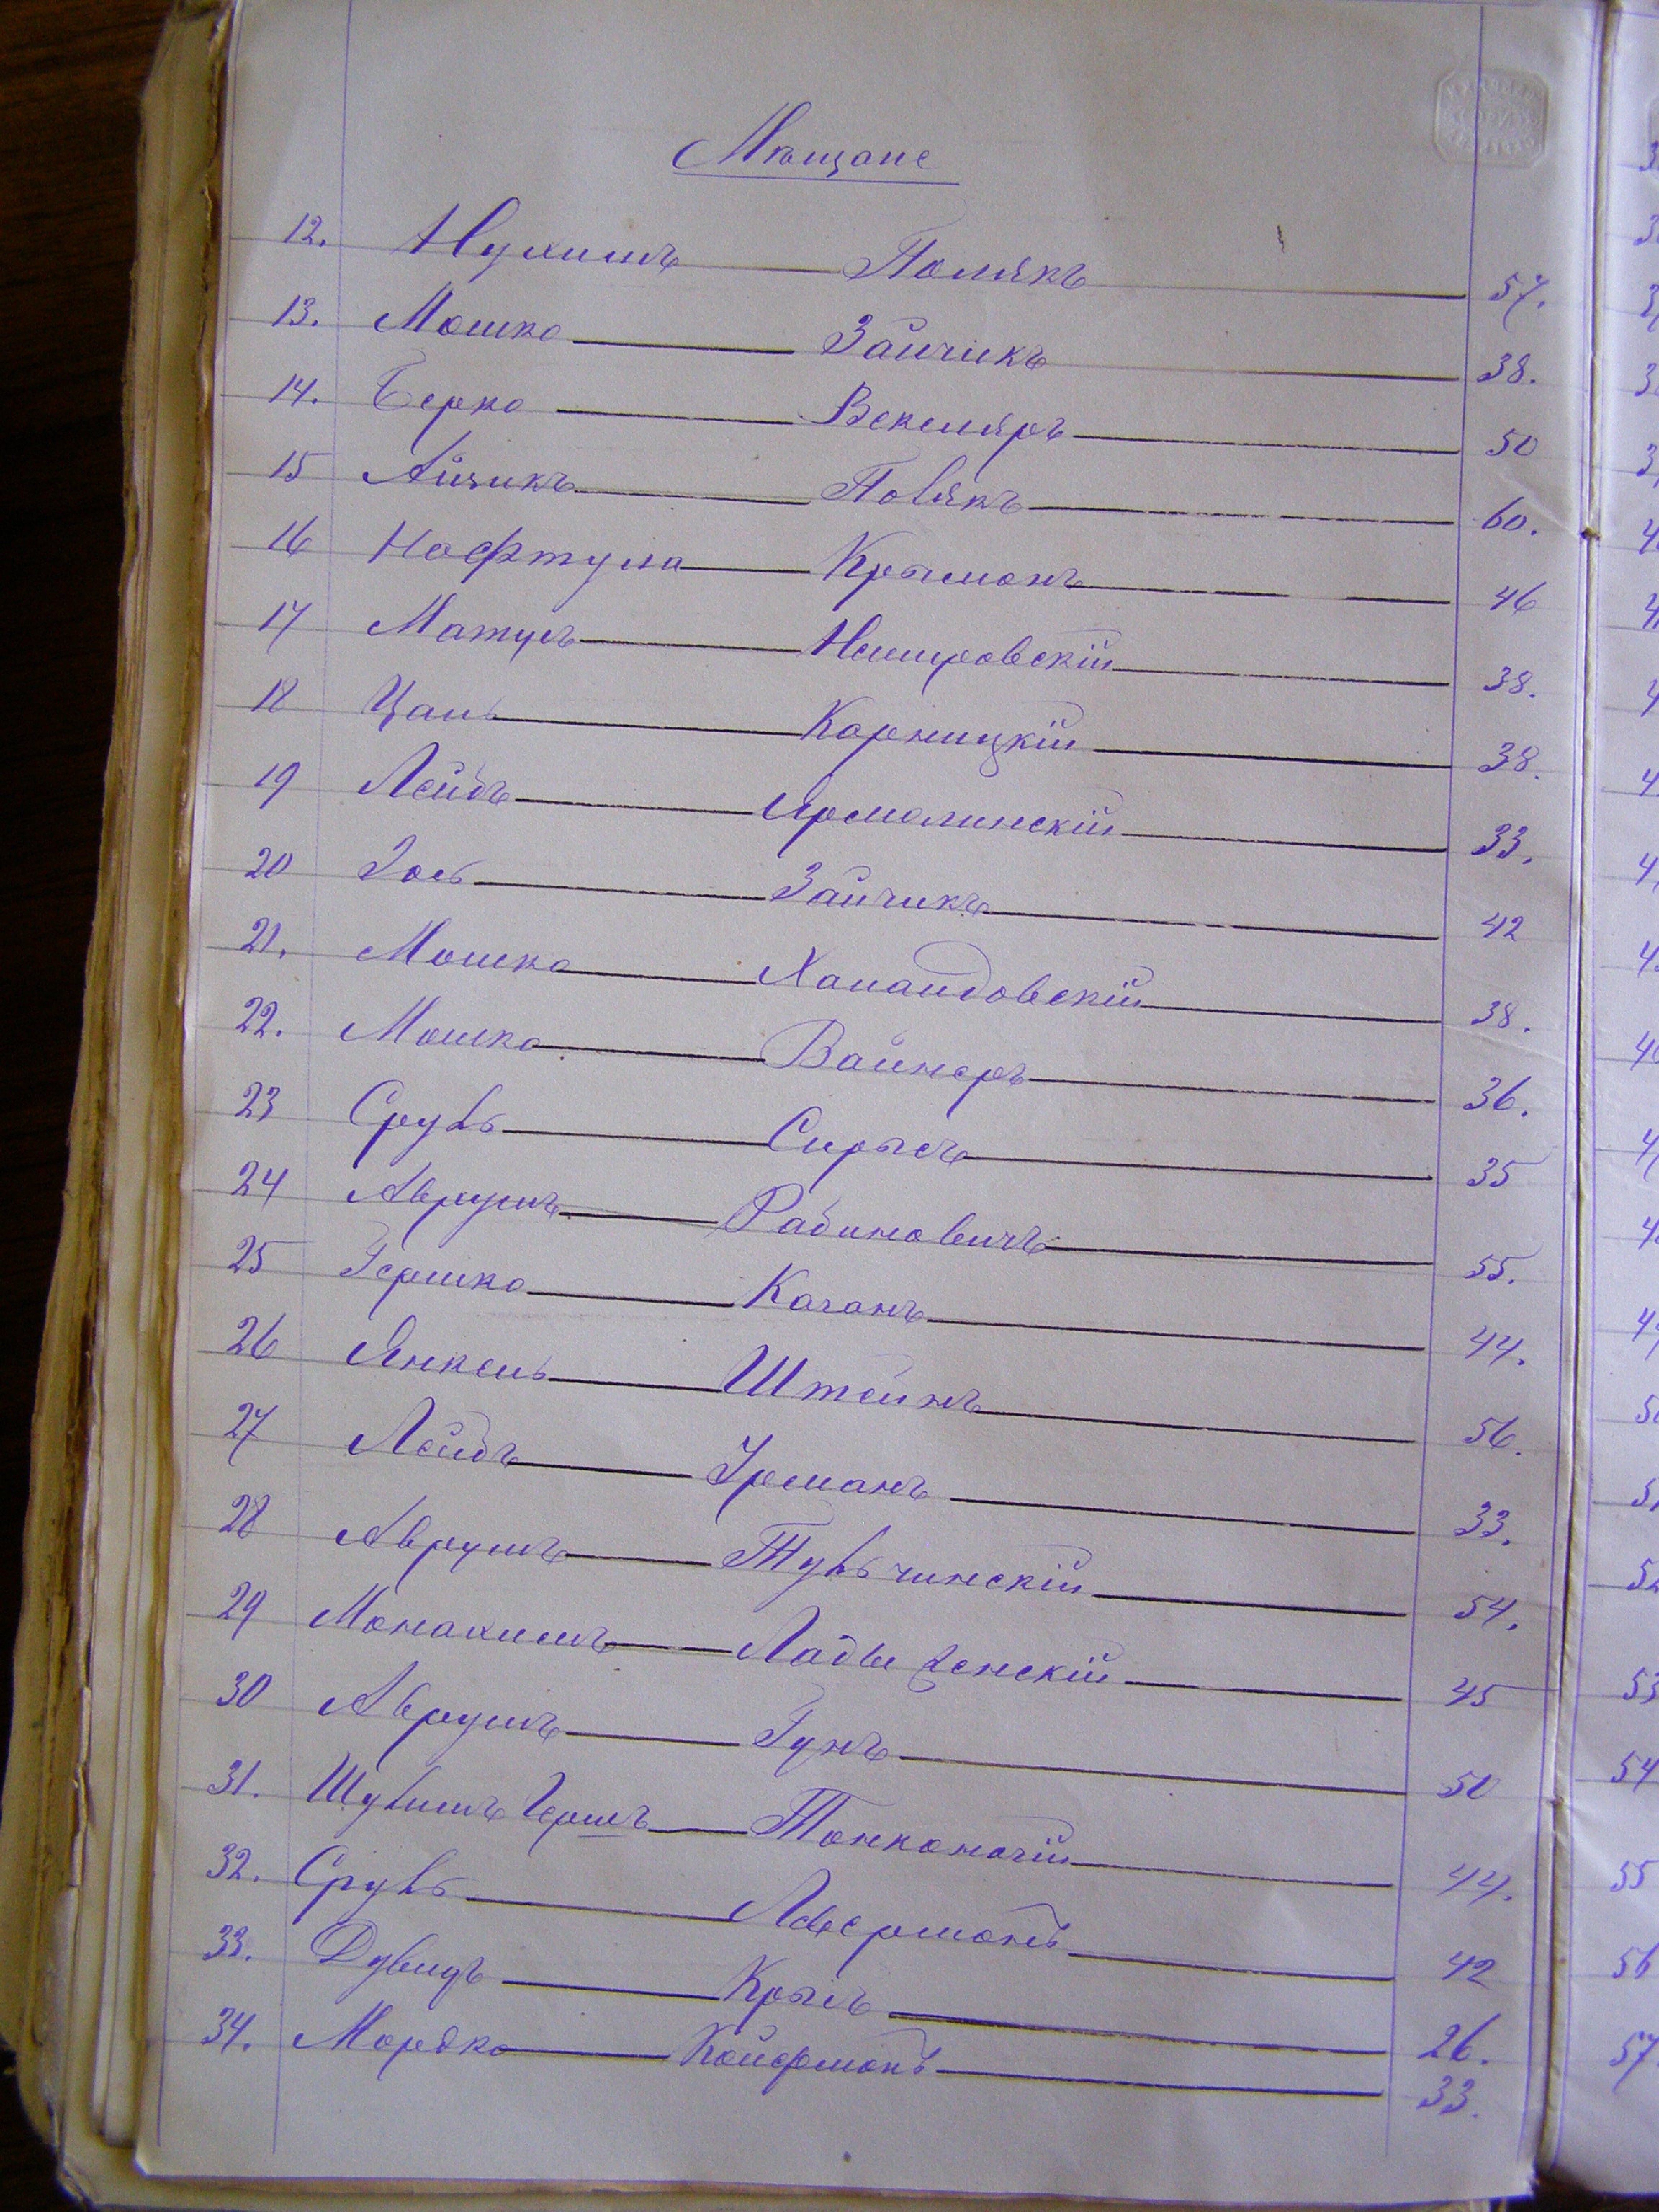 Мѣщане
12. Нухимъ Полякъ 57.
13. Мошко Зайчикъ 38.
14. Берко Векслеръ 50
15 Айзикъ Полякъ 60.
16 Нафтула Крыманъ 46
17 Матусъ Немировскій 38.
18 Карницкій 38.
19 Лейбъ Ярмолинскій 33.
20 Іось Зайчикъ 42
21. Мошко 38.
22. Мошко Вайнеръ 36.
23 Сруль Сирысъ 35
24 Аврумъ Рабиновичъ 55.
25 Гершко Каганъ 44.
26 Янкель Штейнъ 56.
27 Лейбъ Урманъ 33.
28 Аврумъ Тульчинскій 54.
29 Монахимъ Ладыженскій 45
30 Аврумъ Гунъ 50
31. Шулимъ Гершъ Тонконогій 44.
32. Сруль 42
33. Дувидъ Крысъ 26.
34. Мордко Койфманъ 33.